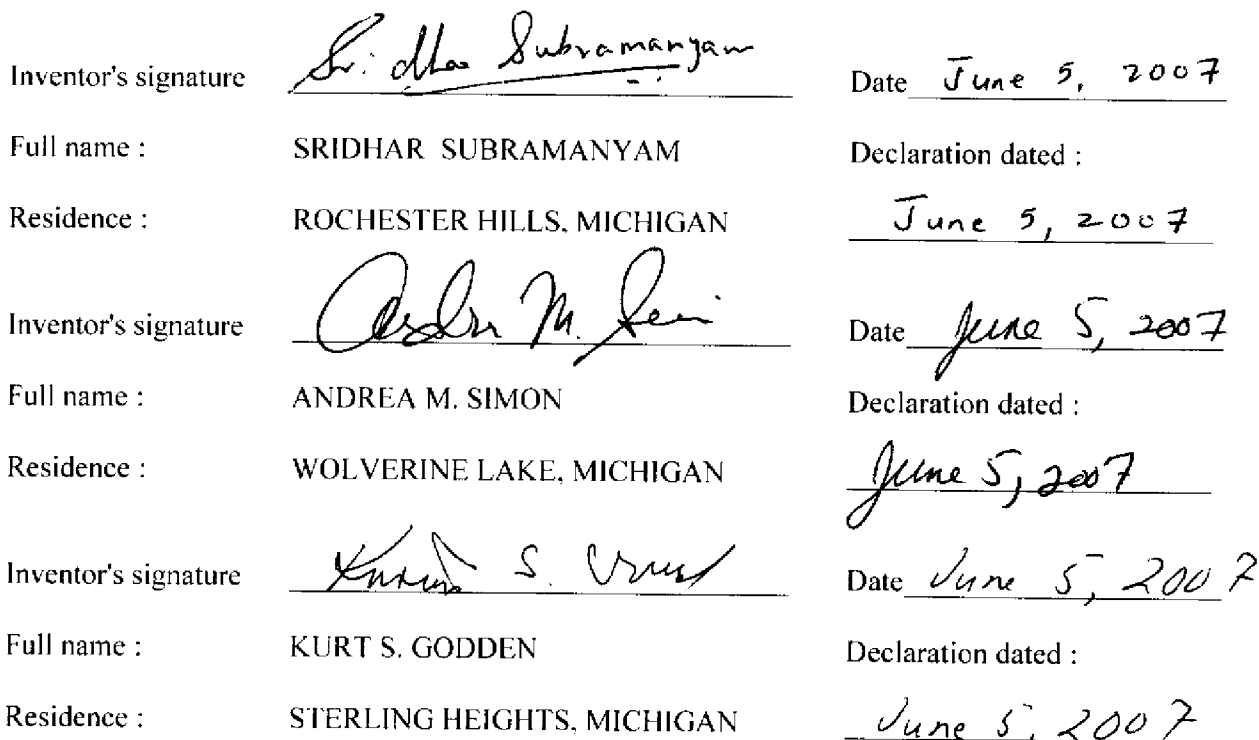 Inventor's signature Sridhar Subramanyam Date June 5, 2007
Full name : SRIDHAR SUBRAMANYAM Declaration dated :
Residence : ROCHESTER HILLS, MICHIGAN June 5, 2007
Inventor's signature M. Date June 5, 2007
Full name : ANDREA M. SIMON Declaration dated :
Residence : WOLVERINE LAKE, MICHIGAN June 5, 2007
Inventor's signature S. Date June 5, 2007
Full name : KURT S. GODDEN Declaration dated :
Residence : STERLING HEIGHTS, MICHIGAN June 5, 2007